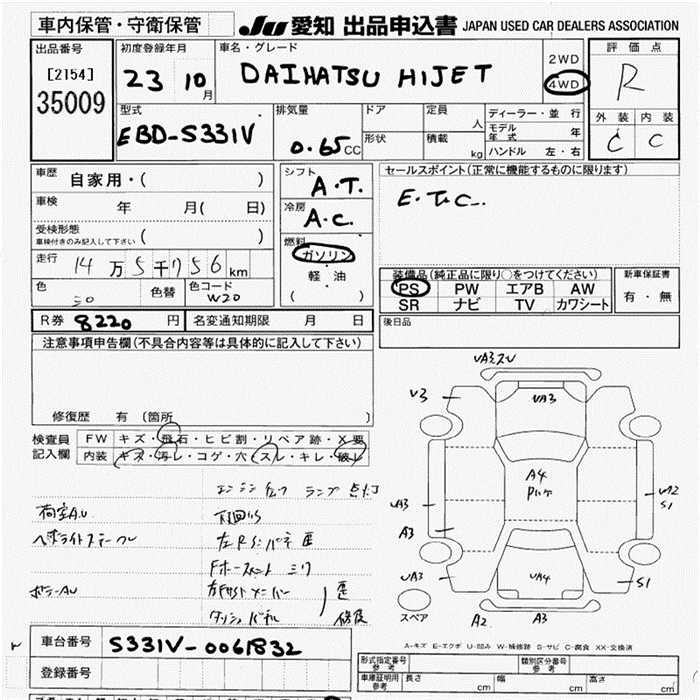 車内保管・守衛保管 JU 愛知 出品申込書 JAPAN USED CAR DEALERS ASSOCIATION
出品番号 初度登録年月 車名・グレード 評価点
[2154] 23 10月 DAIHATSU HIJET 2WD R
35009 4WD
型式 排気量 ドア 定員 人 ディーラー・並行 外装 内装
EBD-S331V 0.65CC 形状 積載 kg モデル年式 年 C C
ハンドル 左・右
車歴 自家用・( ) シフト A.T. セールスポイント(正常に機能するものに限ります)
車検 年 月( 日) 冷房 A.C.
受検形態 車検付きのみ記入して下さい ( ) 燃料 ガソリン
走行 14万5千756km 軽・油 装備品(純正品に限り○をつけてください) 新車保証書
色 シロ 色替 色コード W20 ( ) PS PW エアB AW 有・無
SR ナビ TV カワシート
R券 8220円 名変通知期限 月 日 後日品
注意事項申告欄(不具合内容等は具体的に記入して下さい)
修復歴 有 (箇所 )
検査員記入欄 FW キズ・飛石・ヒビ割・リペア跡・X要
内装 キズ・汚レ・コゲ・穴・スレ・キレ・破レ
エンジンチェックランプ点灯
荷室A.U 下回りS
左RSパネ歪
ボデーAU
修復
UA3 スU
U3 UA3
A4
UA3 U2
A3 S1
UA3 UA4 S1
スペア A2 A3
車台番号 S331V-0061832
登録番号
A-キズ E-エクボ U-凹み W-補修跡 S-サビ C-腐食 XX-交換済
形式指定番号 参考 類別区分番号 参考
車庫証明用 参考 長さ cm 幅 cm 高さ cm